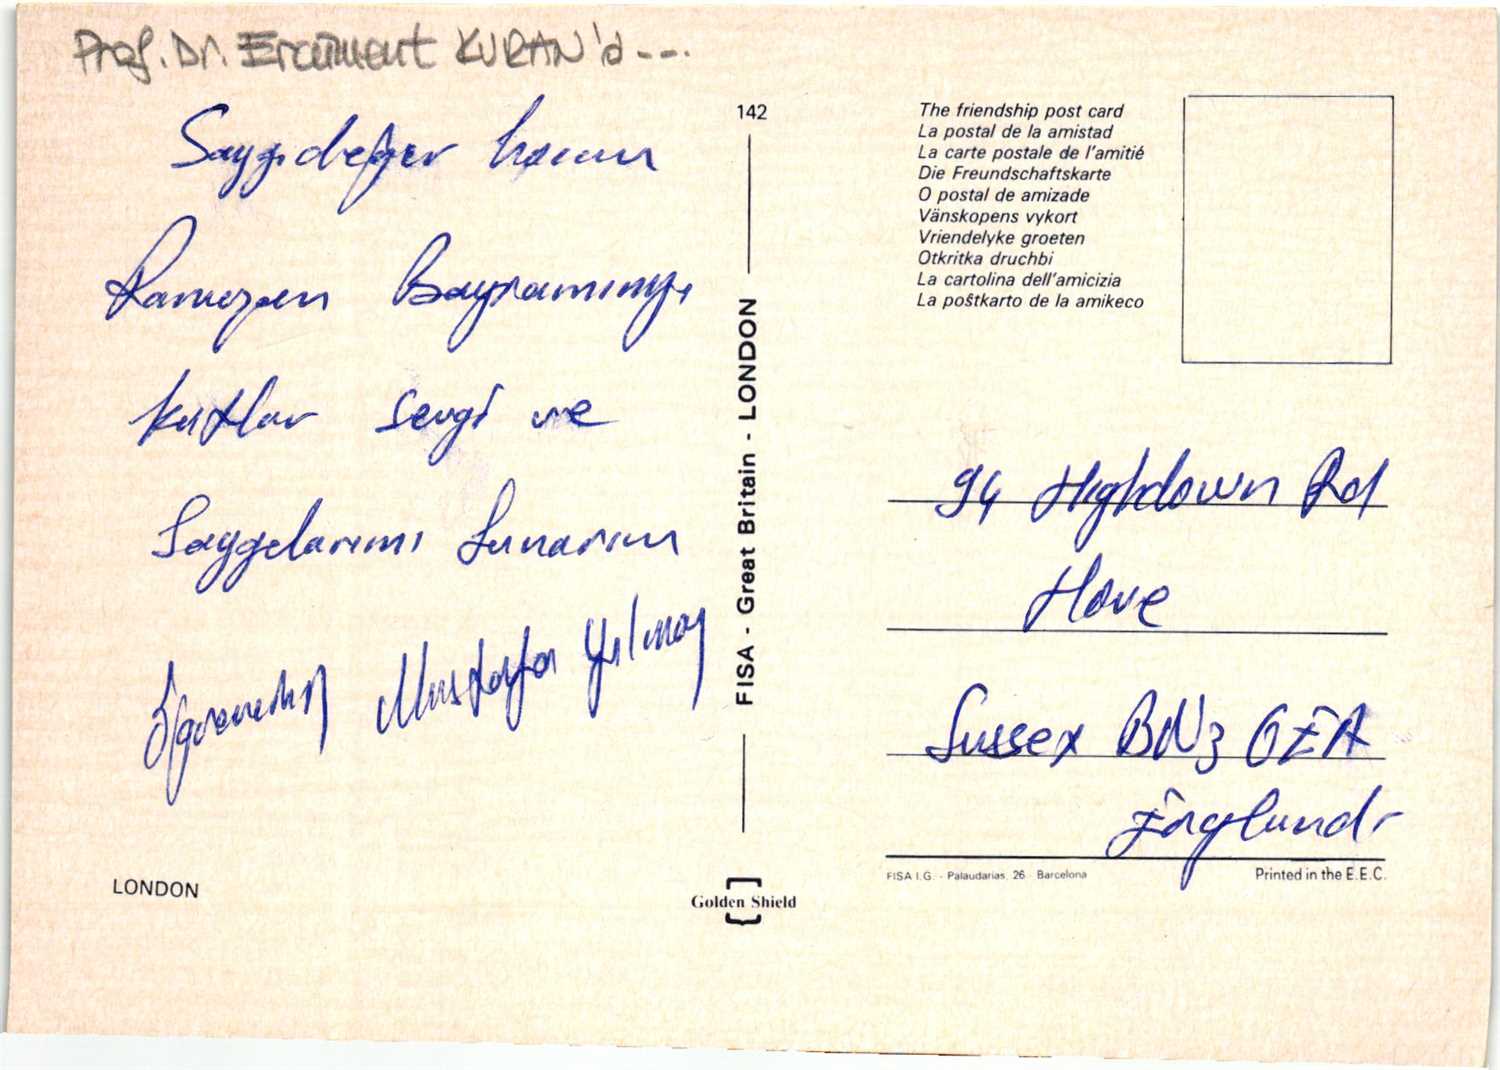 Prof. Dr. Ercüment KURAN'd---.
Saygıdeğer hocam
Ramazan Bayramınızı
kutlar sevgi ve
Saygılarımı Sunarım
Öğrenciniz Mustafa Yılmaz
LONDON
142
FISA - Great Britain - LONDON
Golden Shield
The friendship post card
La postal de la amistad
La carte postale de l'amitié
Die Freundschaftskarte
O postal de amizade
Vänskopens vykort
Vriendelyke groeten
Otkritka druchbi
La cartolina dell'amicizia
La poŝtkarto de la amikeco
94 Highdown Rd
Hove
Sussex BN3 6EA
England
FISA I.G. - Palaudarias, 26 - Barcelona
Printed in the E.E.C.